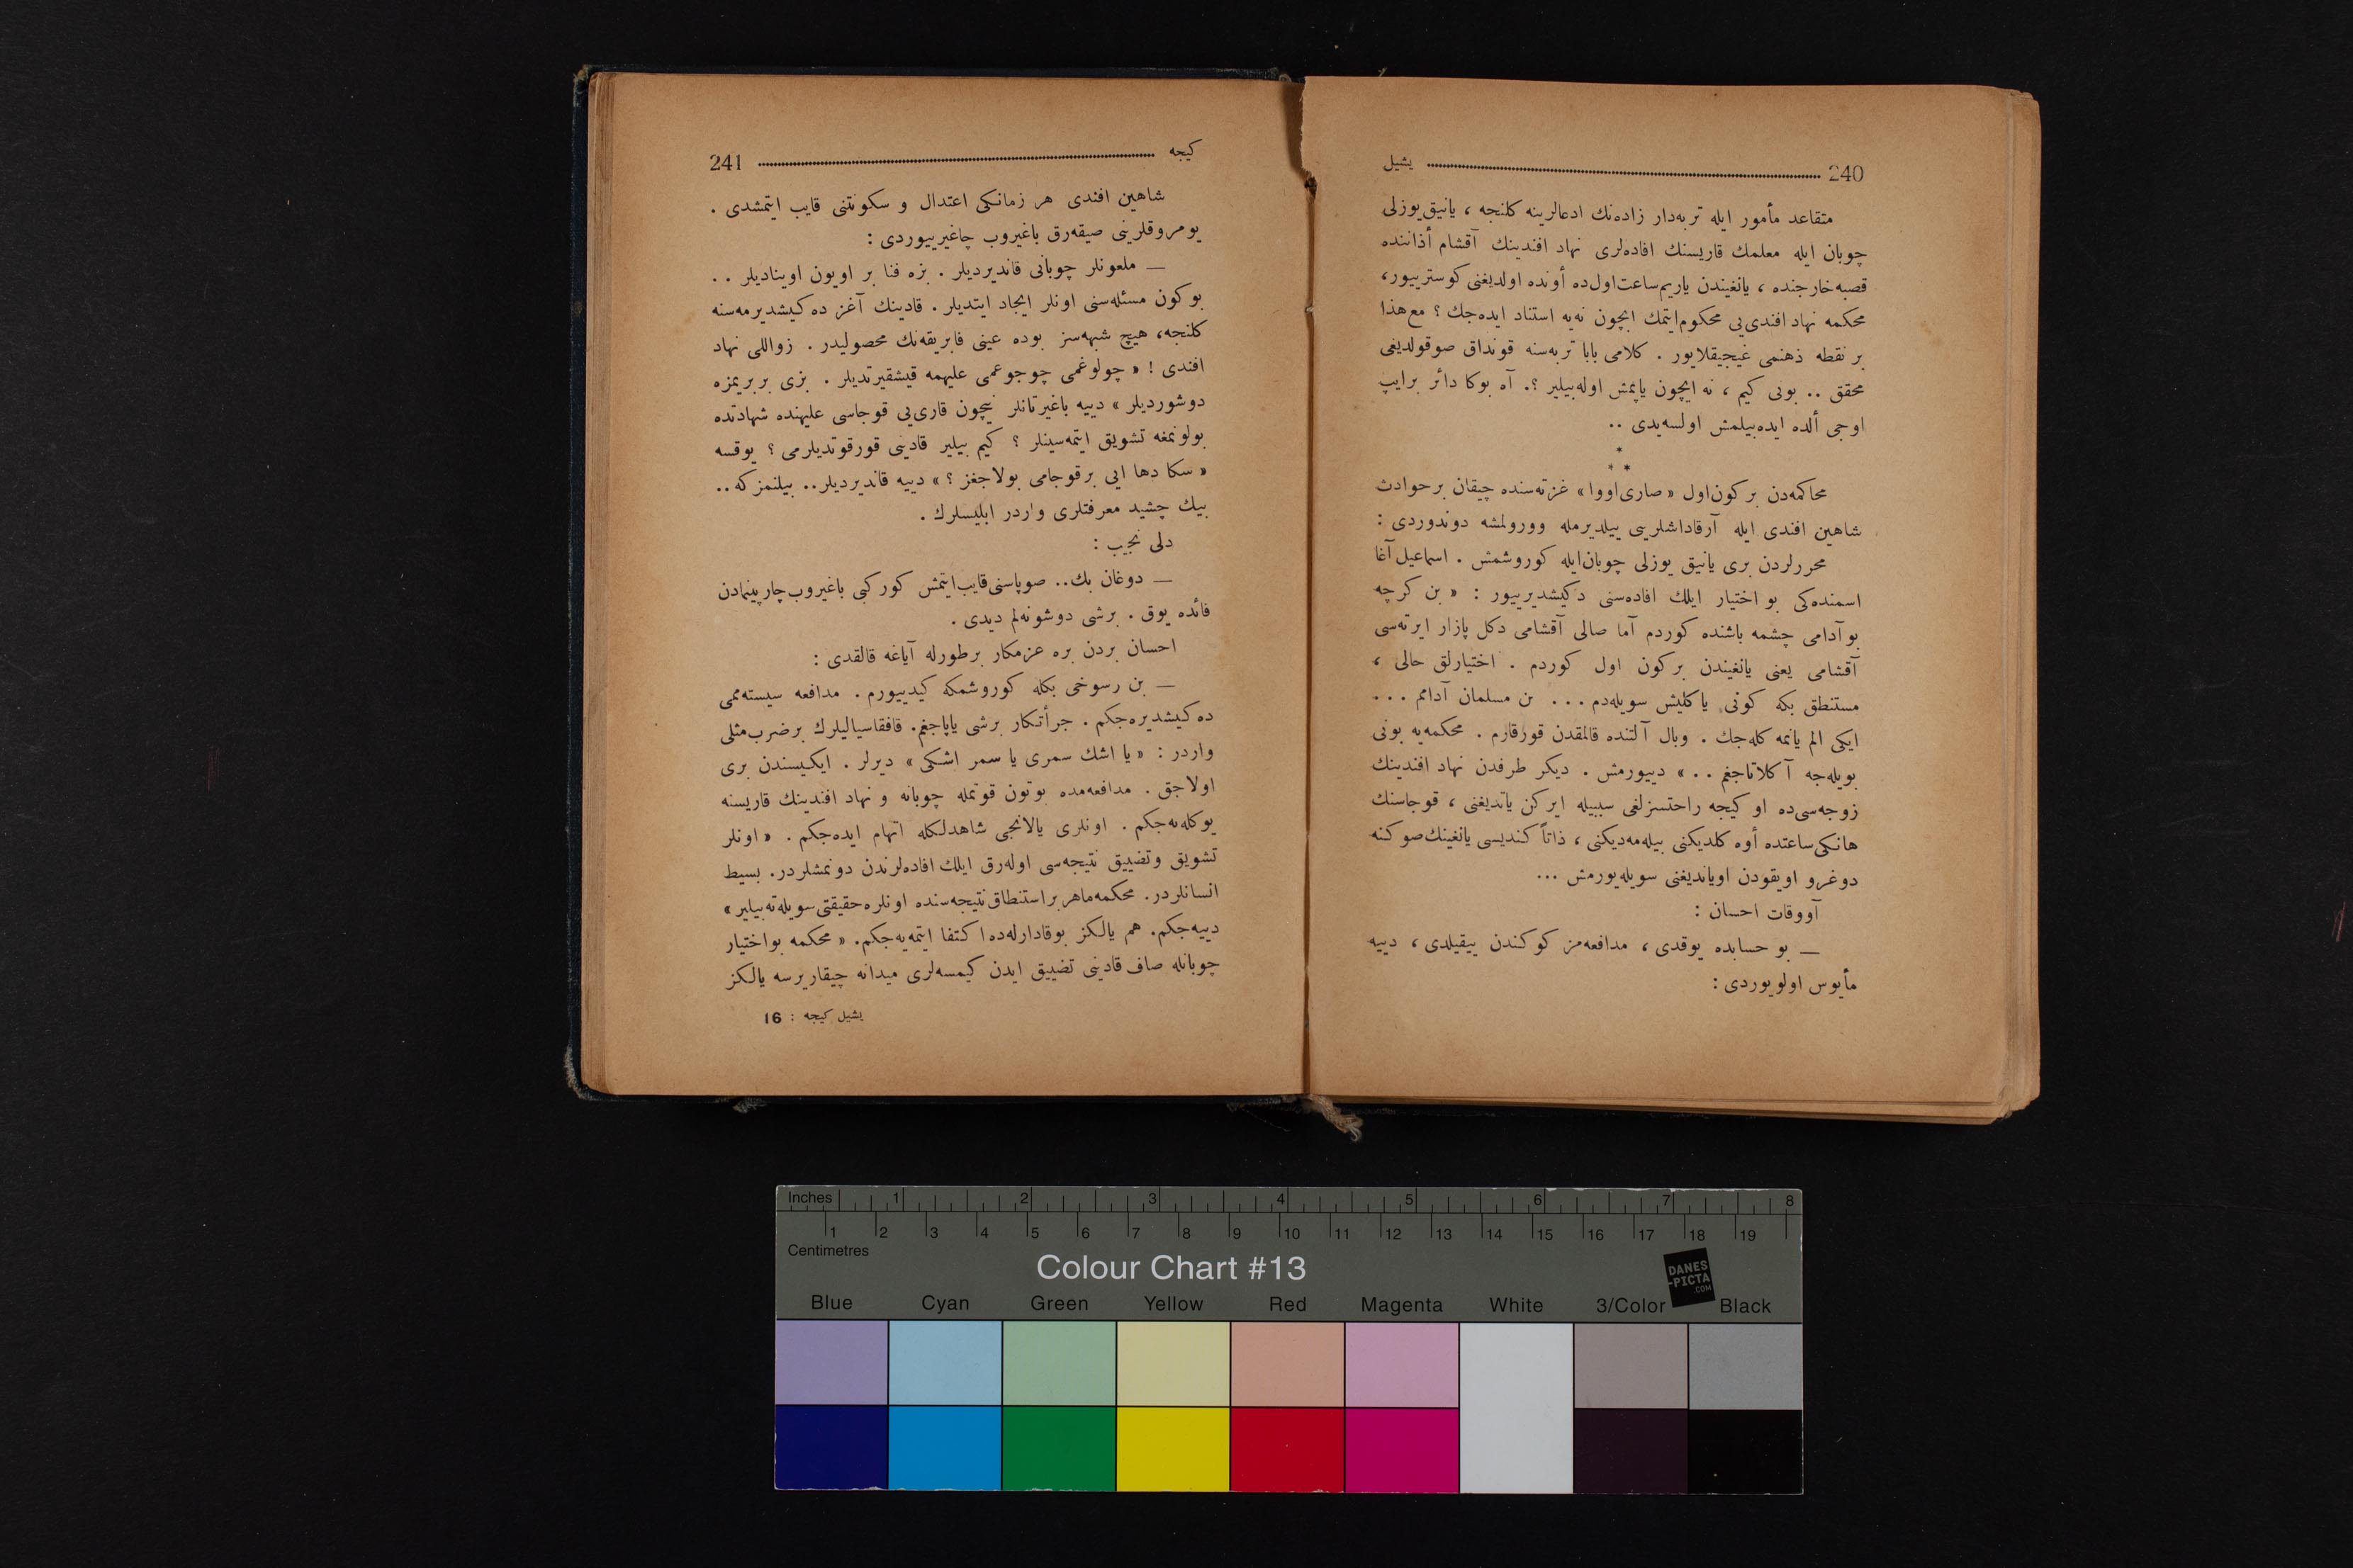 240 يشيل
متقاعد مأمور ايله تربه‌دار زاده‌نك ادعالرينه كلنجه ، يانيق يوزلی
چوبان ايله معلمك قاريسنك افاده‌لری نهاد افندينك آقشام أذاننده
قصبه خارجنده ، يانغيندن ياريم ساعت اول ده أونده اولديغنی كوسترييور،
محكمه نهاد افندی‌يی محكوم ايتمك ايچون نه‌يه استناد ايده‌جك ؟ مع هذا
بر نقطه ذهنمی غيجيقلايور . كلامی بابا تربه‌سنه قونداق صوقولديغی
محقق .. بونی كيم ، نه ايچون ياپمش اوله‌بيلير ؟. آه بوكا دائر بر ايپ
اوجی ألده ايده‌بيلمش اولسه‌يدی ..
* * *
محاكمه‌دن بر كون اول « صاری‌اووا » غزته‌سنده چيقان بر حوادث
شاهين افندی ايله آرقاداشلرينی ييلديرمله وورولمشه دوندوردی :
محررلردن بری يانيق يوزلی چوبان ايله كوروشمش . اسماعيل آغا
اسمنده‌كی بو اختيار ايلك افاده‌سنی دكيشديرييور : « بن كرچه
بو آدامی چشمه باشنده كوردم آما صالی آقشامی دكل پازار ايرته‌سی
آقشامی يعنی يانغيندن بر كون اول كوردم . اختيارلق حالی ،
مستنطق بكه كونی ياكليش سويله‌دم ... بن مسلمان آدامم ...
ايكی الم يانمه كله‌جك . وبال آلتنده قالمقدن قورقارم . محكمه‌يه بونی
بويله‌جه آكلاتاجغم .. » دييورمش . ديكر طرفدن نهاد افندينك
زوجه‌سی‌ده او كيجه راحتسزلغی سببيله ايركن ياتديغنی ، قوجاسنك
هانكی ساعتده أوه كلديكنی بيله‌مه‌ديكنی ، ذاتاً كنديسی يانغينك صوكنه
دوغرو اويقودن اوياندیغنی سويله‌يورمش ...
آووقات احسان :
— بو حسابده يوقدی ، مدافعه‌مز كوكندن ييقيلدی ، دييه
مأيوس اولويوردی :
كيجه 241
شاهين افندی هر زمانكی اعتدال و سكونتنی قايب ايتمشدی .
يومروقلرينی صيقه‌رق باغيروب چاغيرييوردی :
— ملعونلر چوبانی قانديرديلر . بزه فنا بر اويون اويناديلر ..
بو كون مسئله‌سنی اونلر ايجاد ايتديلر . قادينك آغز ده‌كيشديرمه‌سنه
كلنجه، هيچ شبهه‌سز بوده عينی فابريقه‌نك محصوليدر . زواللی نهاد
افندی ! « چولوغمی چوجوغمی عليهمه قيشقيرتديلر . بزی بر بريمزه
دوشورديلر » دييه باغيرتانلر نيچون قاری‌يی قوجاسی عليهنده شهادتده
بولونمغه تشويق ايتمه‌سينلر ؟ كيم بيلير قادينی قورقوتديلرمی ؟ يوقسه
« سكا دها ايی بر قوجامی بولاجغز ؟ » دييه قانديرديلر.. بيلنمز كه ..
بيك چشيد معرفتلری واردر ابليسلرك .
دلی نجيب :
— دوغان بك.. صوپاسنی قايب ايتمش كور كبی باغيروب چارپينمادن
فائده يوق . برشی دوشونه‌لم ديدی .
احسان بردن بره عزمكار بر طورله آياغه قالقدی :
— بن رسوخی بكله كوروشمكه كيدييورم . مدافعه سيسته‌ممی
ده‌كيشديره‌جكم . جرأتكار برشی ياپاجغم. قافقاسياليلرك بر ضرب مثلی
واردر : « يا اشك سمری يا سمر اشكی » ديرلر . ايكيسندن بری
اولاجق . مدافعه‌مده بوتون قوتمله چوبانه و نهاد افندينك قاريسنه
يوكله‌نه‌جكم . اونلری يالانجی شاهدلكله اتهام ايده‌جكم . « اونلر
تشويق وتضييق نتيجه‌سی اوله‌رق ايلك افاده‌لرندن دونمشلردر. بسيط
انسانلردر. محكمه ماهر بر استنطاق نتيجه‌سنده اونلره حقيقتی سويله‌ته‌بيلير »
دييه‌جكم. هم يالكز بو قدارله‌ده اكتفا ايتمه‌يه‌جكم. « محكمه بو اختيار
چوبانله صاف قادينی تضييق ايدن كيمسه‌لری ميدانه چيقاريرسه يالكز
يشيل كيجه : 16
Inches 1 2 3 4 5 6 7 8
1 2 3 4 5 6 7 8 9 10 11 12 13 14 15 16 17 18 19
Centimetres
Colour Chart #13
DANES-PICTA.COM
Blue Cyan Green Yellow Red Magenta White 3/Color Black